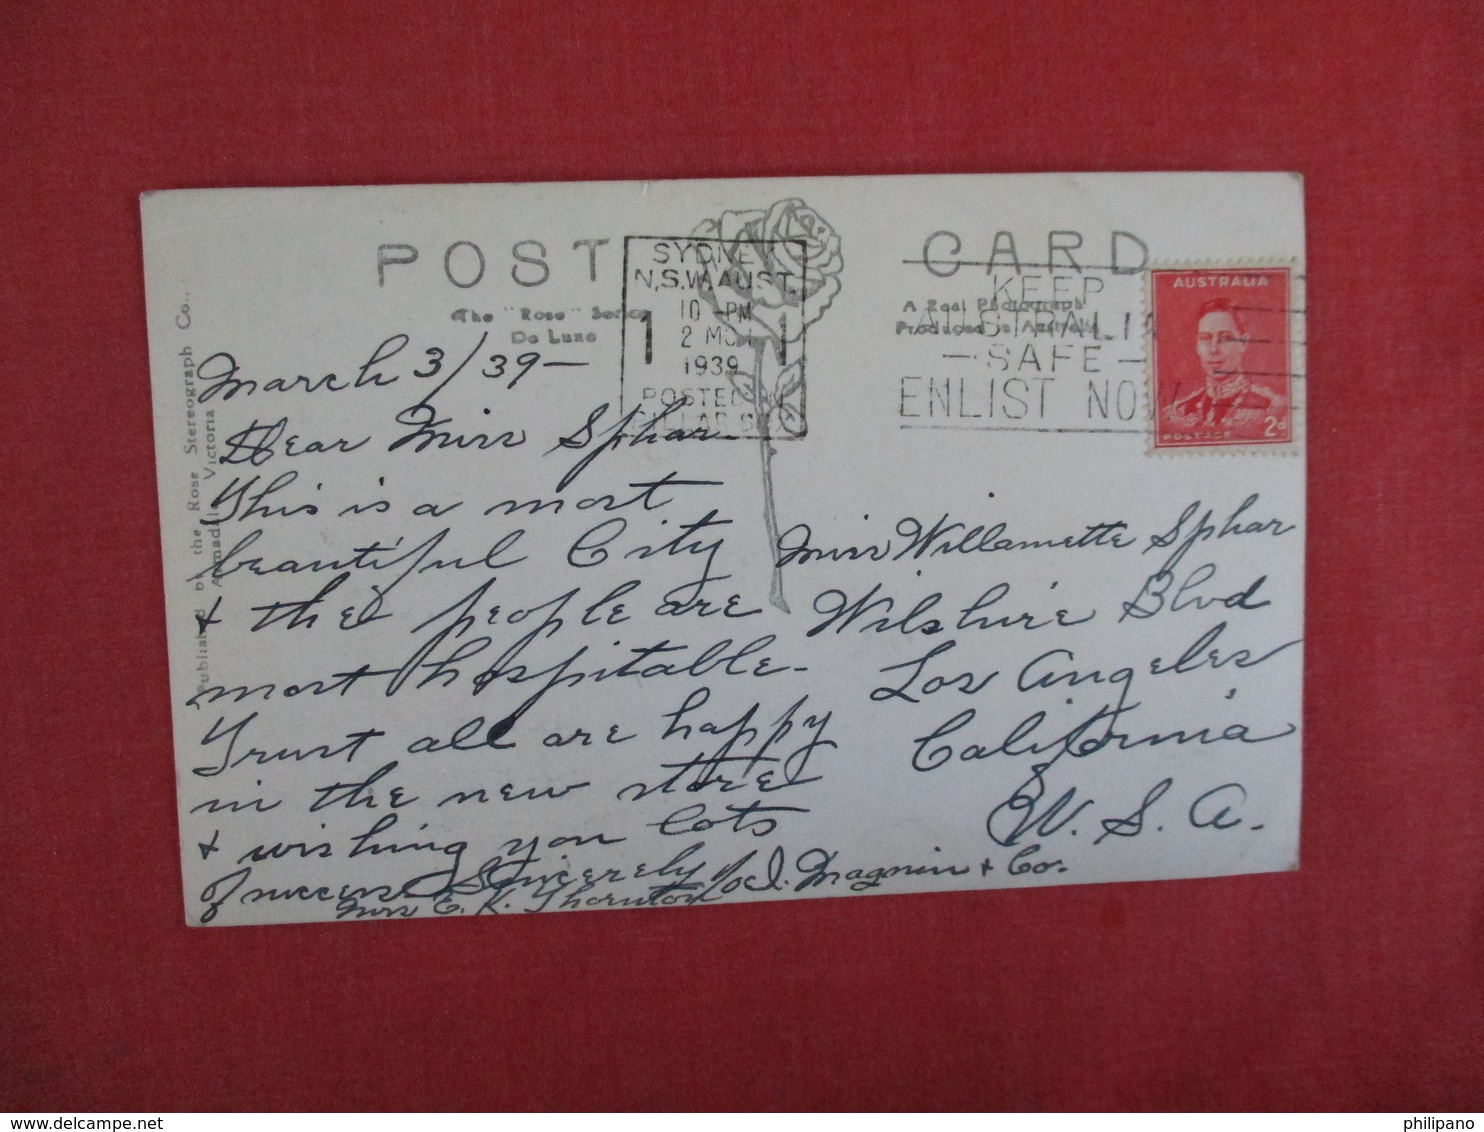 POST CARD
The "Rose" Series
De Luxe
A Real Photograph
Produced in Australia
SYDNEY
N.S.W. AUST.
10 - PM
2 MCH
1939
1 1
POSTED IN
PILLAR BOX
KEEP
AUSTRALIA
- SAFE -
ENLIST NOW
AUSTRALIA
2d
POSTAGE
Published by the Rose Stereograph Co.,
Armadale, Victoria
March 3/39 -
Dear Miss Sphar -
This is a most
beautiful City
& the people are
most hospitable -
Trust all are happy
in the new store
& wishing you lots
of success Sincerely
Miss E. K. Thornton
I. Magnin & Co.
Miss Willamette Sphar
Wilshire Blvd
Los Angeles
California
U. S. A.
delcampe.net
philipano